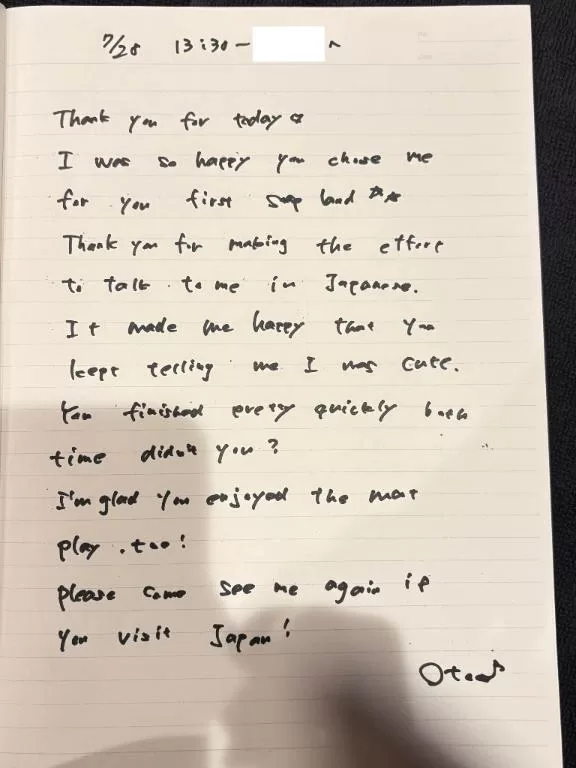 7/28 13:30-
Thank you for today ☆
I was so happy you chose me
for you first soap land ☆☆
Thank you for making the effort
to talk to me in Japanese.
It made me happy that you
kept telling me I was cute.
You finished pretty quickly both
time didn't you?
I'm glad you enjoyed the mat
play, too!
please come see me again if
you visit Japan!